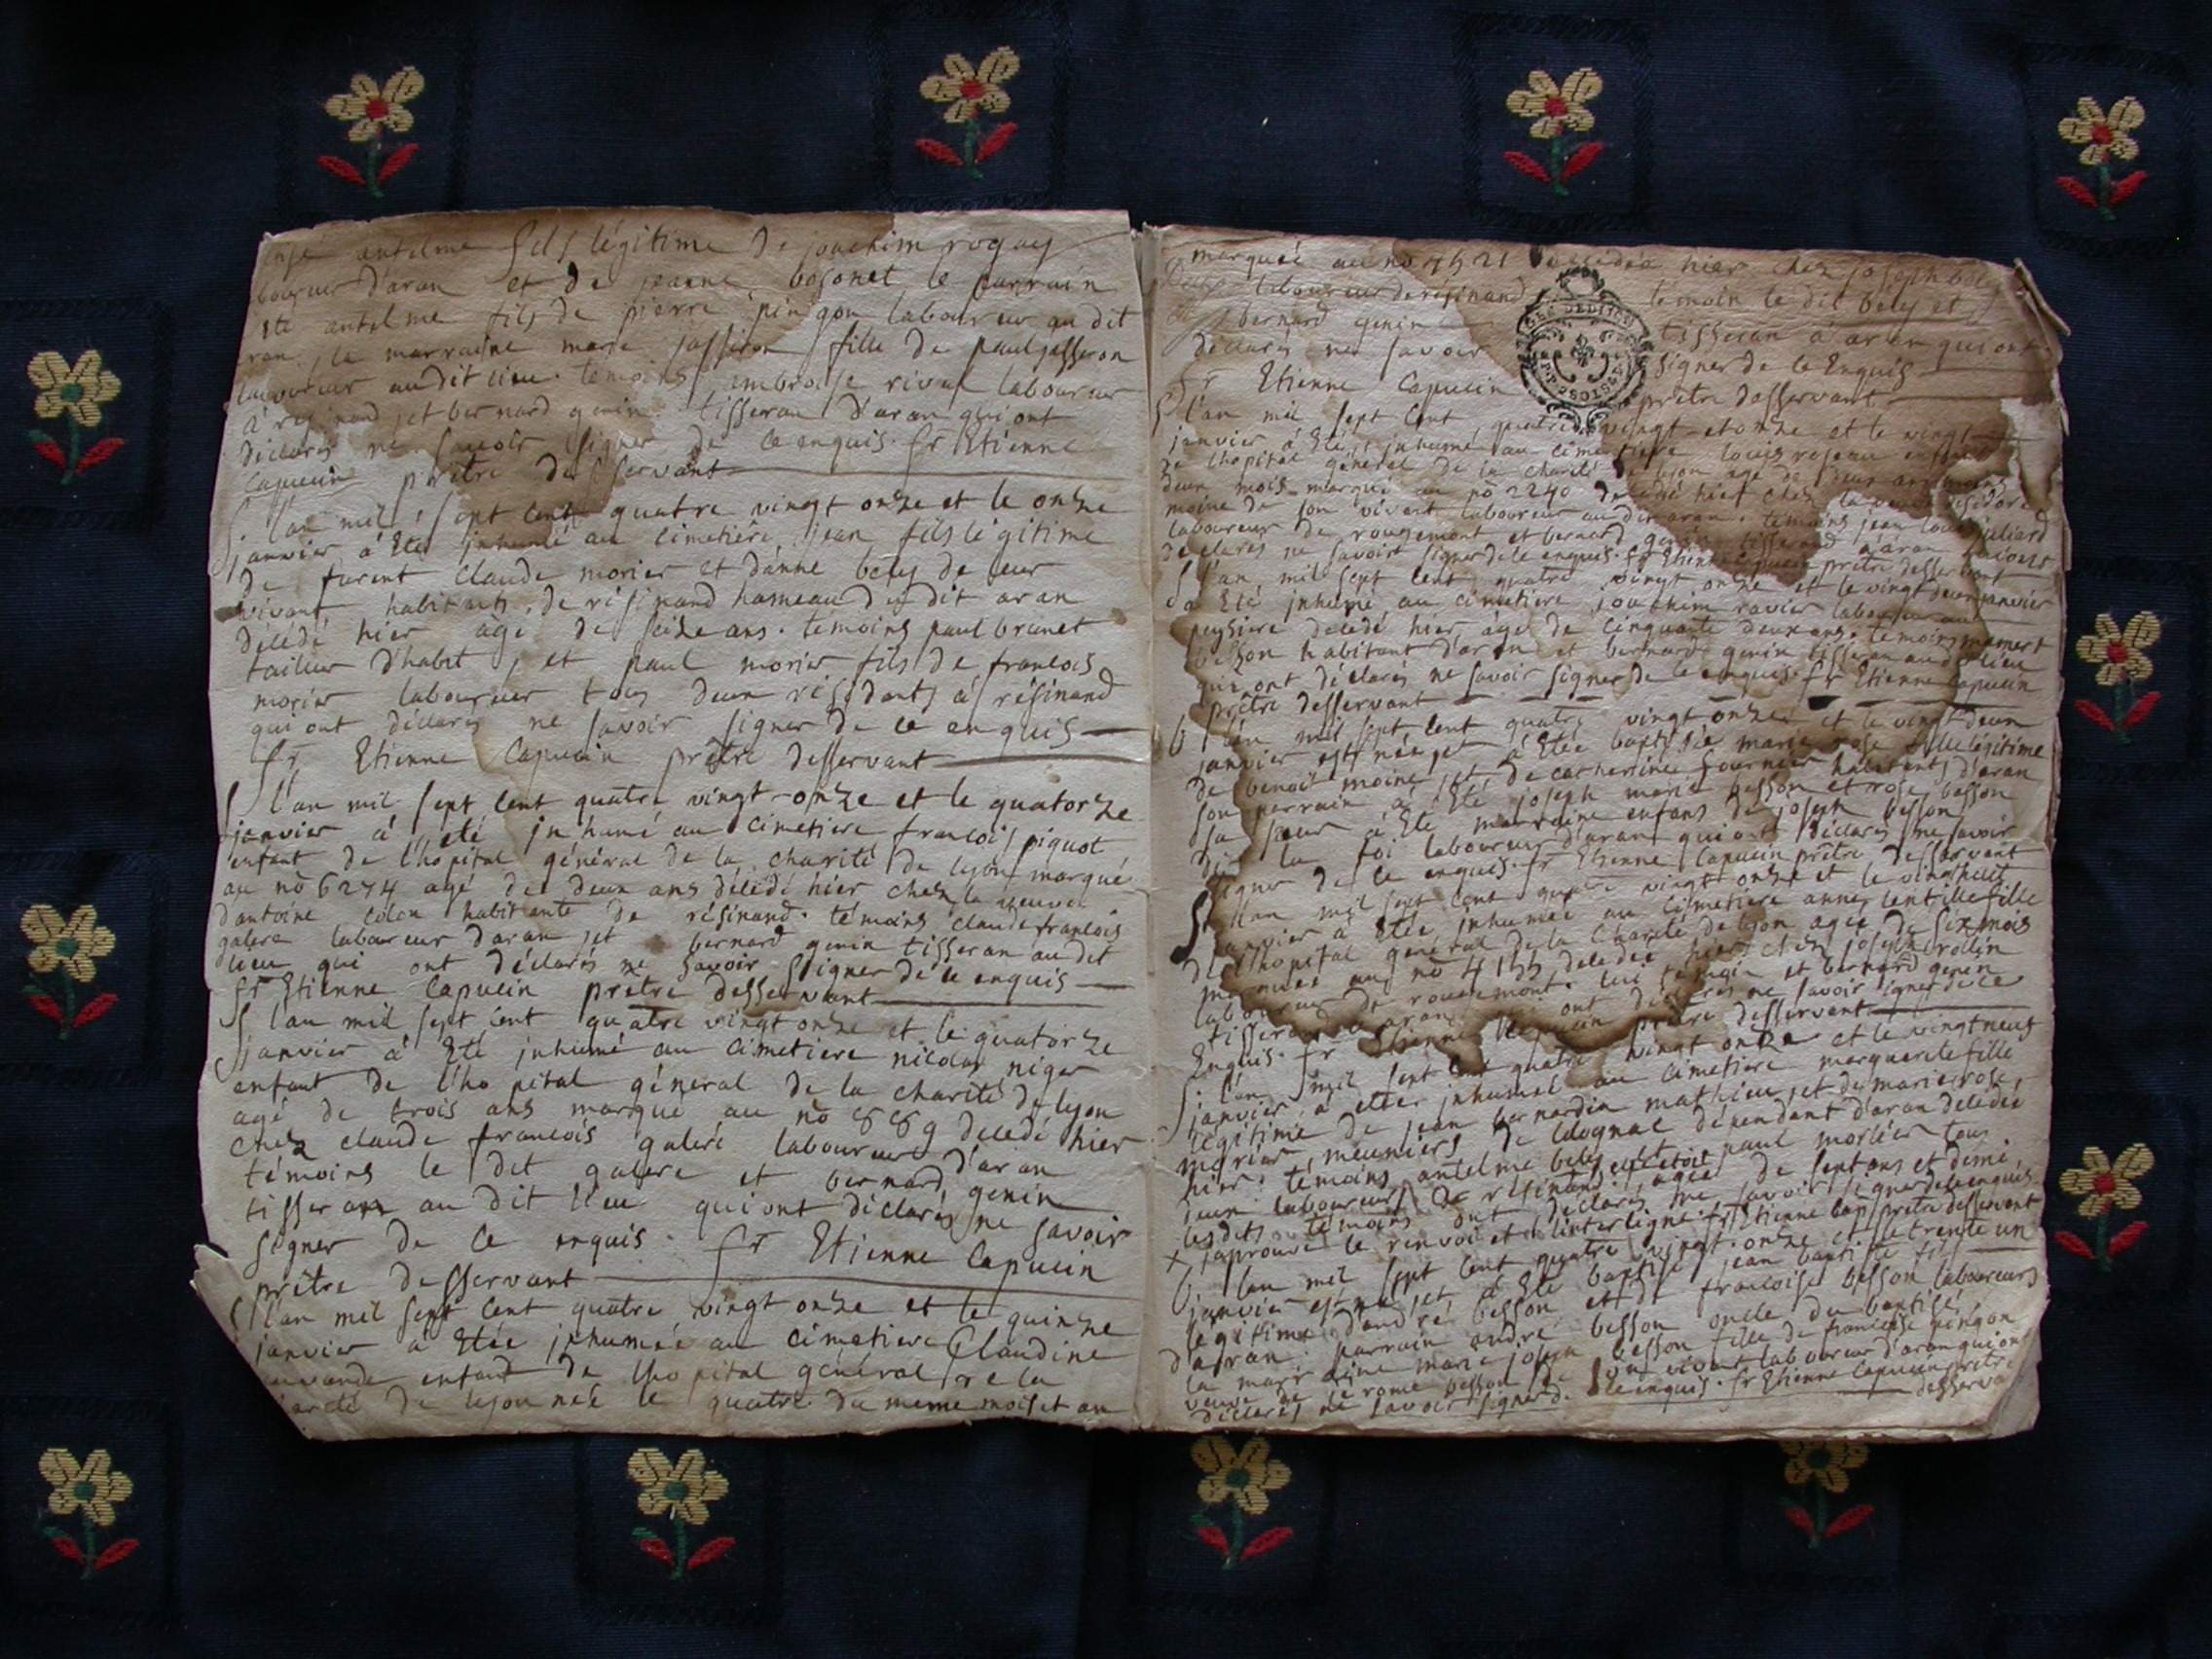 antelme fils légitime De joachim roguey
Daran et De jeanne bosonet le parrain
été antelme fils De pierre pingon laboureur au dit
aran, la marraine marie josseron fille De paul josseron
laboureur audit lieu. temoins ambroise rival laboureur
à résinand, et bernard genin tisseran D'aran qui ont
Déclarés ne savoir signer De ce enquis. fr Etienne
capucin prêtre Desservant
S. l'an mil sept cent quatre vingt onze et le onze
janvier à Eté inhumé au cimetière jean fils légitime
De furent Claude morier et D'anne bely De leur
vivant habitants De résinand hameau Du dit aran
Décédé hier âgé De seize ans. temoins paul brunet
tailleur D'habit, et paul morier fils De francois
morier laboureur tous Deux résidants à résinand
qui ont Déclarés ne savoir signer De ce enquis
fr Etienne Capucin prêtre Desservant
S l'an mil sept cent quatre vingt onze et le quatorze
janvier à été inhumé au cimetiere francois piquot
enfant De l'hopital général De la charité De lyon marqué
au no 6274 agé De Deux ans Décédé hier chez la veuve
D'antoine colon habitante De résinand. témoins claude francois
galere laboureur D'aran, et bernard genin tisseran au dit
lieu qui ont Déclarés ne savoir signer De ce enquis
fr Etienne Capucin prêtre Desservant
S l'an mil sept cent quatre vingt onze et le quatorze
janvier à Eté inhumé au cimetiere nicolas niger
enfant De l'hopital géneral De la charité De lyon
agé De trois ans marqué au no 889 Decedé hier
chez claude francois galere laboureur D'aran
témoins le Dit galere et bernard genin
tisseran au Dit lieu qui ont Déclarés ne savoir
signer De ce enquis. fr Etienne Capucin
prêtre Desservant
S l'an mil sept cent quatre vingt onze et le quinze
janvier à Etée inhumée au cimetiere Claudine
enfant De l'hopital général De la
De lyon née le quatre Du meme mois et an
marquée au no 7521 Decedée hier chez joseph
laboureur De résinand temoin le dit bely et
bernard genin tisseran à aran qui ont
Déclarés ne savoir signer De ce Enquis
fr Etienne Capucin prêtre Desservant
S l'an mil sept cent quatre vingt et onze et le vingt
janvier à Eté inhumé au cimetiere louis enfant
De l'hopital général De la charité De lyon agé De Deux ans moins
Deux mois marqué au no 2240 Décédé hier chez la veuve
moine De son vivant laboureur au dit aran. temoins jean louis juliard
laboureur De rougemont et bernard genin tisserand à aran qui ont
Déclarés ne savoir signer De ce enquis. fr Etienne Capucin prêtre Desservant
S l'an mil sept cent quatre vingt onze et le vingt Deux janvier
à Eté inhumé au cimetiere joachim ravier laboureur
Décédé hier âgé De cinquante Deux ans. témoins
besson habitant D'aran et bernard genin tisseran audit lieu
qui ont Déclarés ne savoir signer De ce enquis. fr Etienne Capucin
prêtre Desservant
b l'an mil sept cent quatre vingt onze et le vingt Deux
janvier est née, et à Etée baptisée marie rose fille légitime
De benoit moine, et De catherine fournier habitants D'aran
son parrain à Eté joseph marie besson et rose besson
sa sœur à Eté marraine enfans De joseph besson
Dit la foi laboureur D'aran qui ont Déclarés ne savoir
signer De ce enquis. fr Etienne Capucin prêtre Desservant
S l'an mil sept cent quatre vingt onze et le vingt huit
janvier à Etée inhumée au cimetiere anne lentille fille
De l'hopital général De la charité De lyon agée De six mois
marquée au no 4155 Décédée hier chez joseph drollin
laboureur De rougemont. lui témoin et bernard genin
tisseran D'aran ont Déclarés ne savoir signer De ce
Enquis. fr Etienne Capucin prêtre Desservant
S. l'an mil sept cent quatre vingt onze et le vingt neuf
janvier à Etée inhumée au cimetiere marguerite fille
légitime De jean bernardin mathieu, et De marie rose
morier meuniers De Dépendant D'aran Décédée
hier. témoins antelme bely et paul morier tous
Deux laboureurs De résinand. elle étoit agée De sept ans et Demi.
lesdits témoins ont Déclarés ne savoir signer De ce enquis
x j'aprouve le renvoi et l'interligne. fr Etienne Cap prêtre Desservant
b. l'an mil sept cent quatre vingt onze et le trente un
janvier est né, et à Eté baptisé jean baptiste fils
légitime D'andré besson et De francoise besson laboureurs
D'aran. parrain andré besson oncle Du baptisé,
la marraine marie joseph besson fille De francoise pingon
veuve De jerome besson De son vivant laboureur D'aran qui ont
Déclarés ne savoir signer De ce enquis. fr Etienne Capucin prêtre